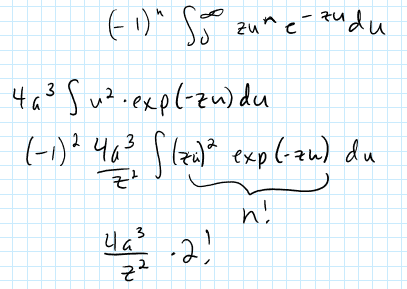 (-1)^n ∫_0^∞ zu^n e^{-zu} du
4a³ ∫ u² · exp(-zu) du
(-1)² 4a³/z² ∫ (zu)² exp(-zu) du
n!
4a³/z² · 2!